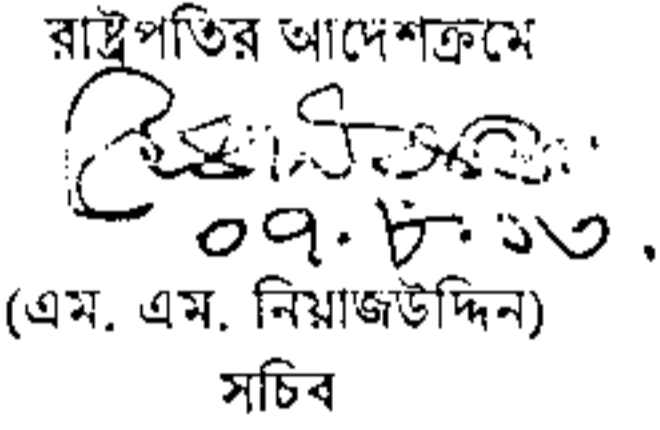 রাষ্ট্রপতির আদেশক্রমে
০৭.৮.১৩.
(এম. এম. নিয়াজউদ্দিন)
সচিব